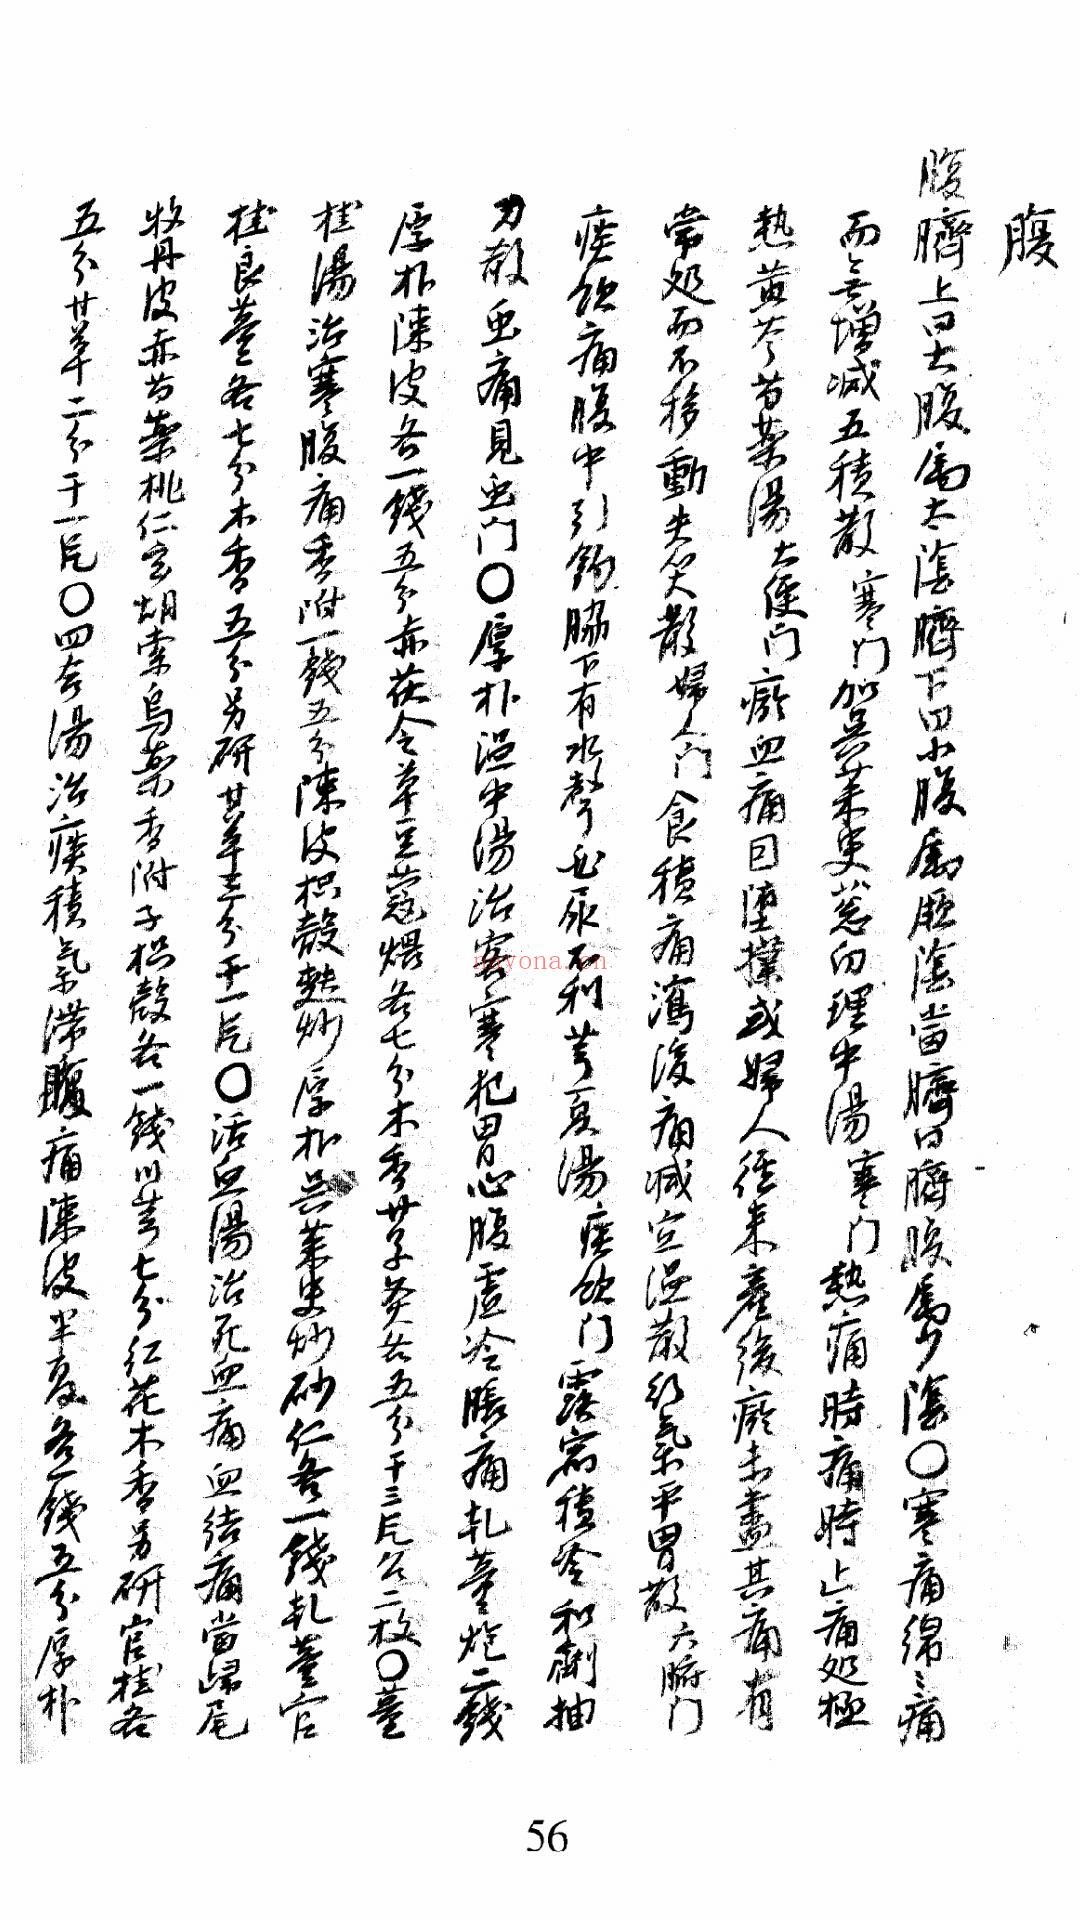 腹
腹臍上曰大腹属太陰臍下曰小腹属厥陰當臍曰臍腹属少陰〇寒痛綿〻痛
而无增减五積散寒门加吳茱萸葱白理中湯寒门熱痛時痛時止痛処極
熱黄芩芍薬湯大便门瘀血痛因堕撲或婦人経来産後瘀未盡其痛有
常処而不移動失笑散婦人门食積痛瀉後痛减宜温散行氣平胃散六腑门
痰飲痛腹中引鈎脇下有水聲必尿不利芎夏湯痰飲门露宿積冷和劑抽
刀散虫痛見虫门〇厚朴温中湯治客寒犯胃心腹虚冷脹痛乹薑炮二錢
厚朴陳皮各一錢五分赤茯令草豆蔻煨各七分木香甘草炙各五分干三片召二枚〇薑
桂湯治寒腹痛香附一錢五分陳皮枳殻麩炒厚朴吳茱萸炒砂仁各一錢乹薑官
桂良薑各七分木香五分另研甘草三分干一片〇活血湯治死血痛血结痛當歸尾
牧丹皮赤芍薬桃仁玄胡索烏薬香附子枳殻各一錢川芎七分红花木香另研官桂各
五分甘草二分干一片〇四合湯治痰積氣滞腹痛陳皮半夏各一錢五分厚朴
56
nayona.cn